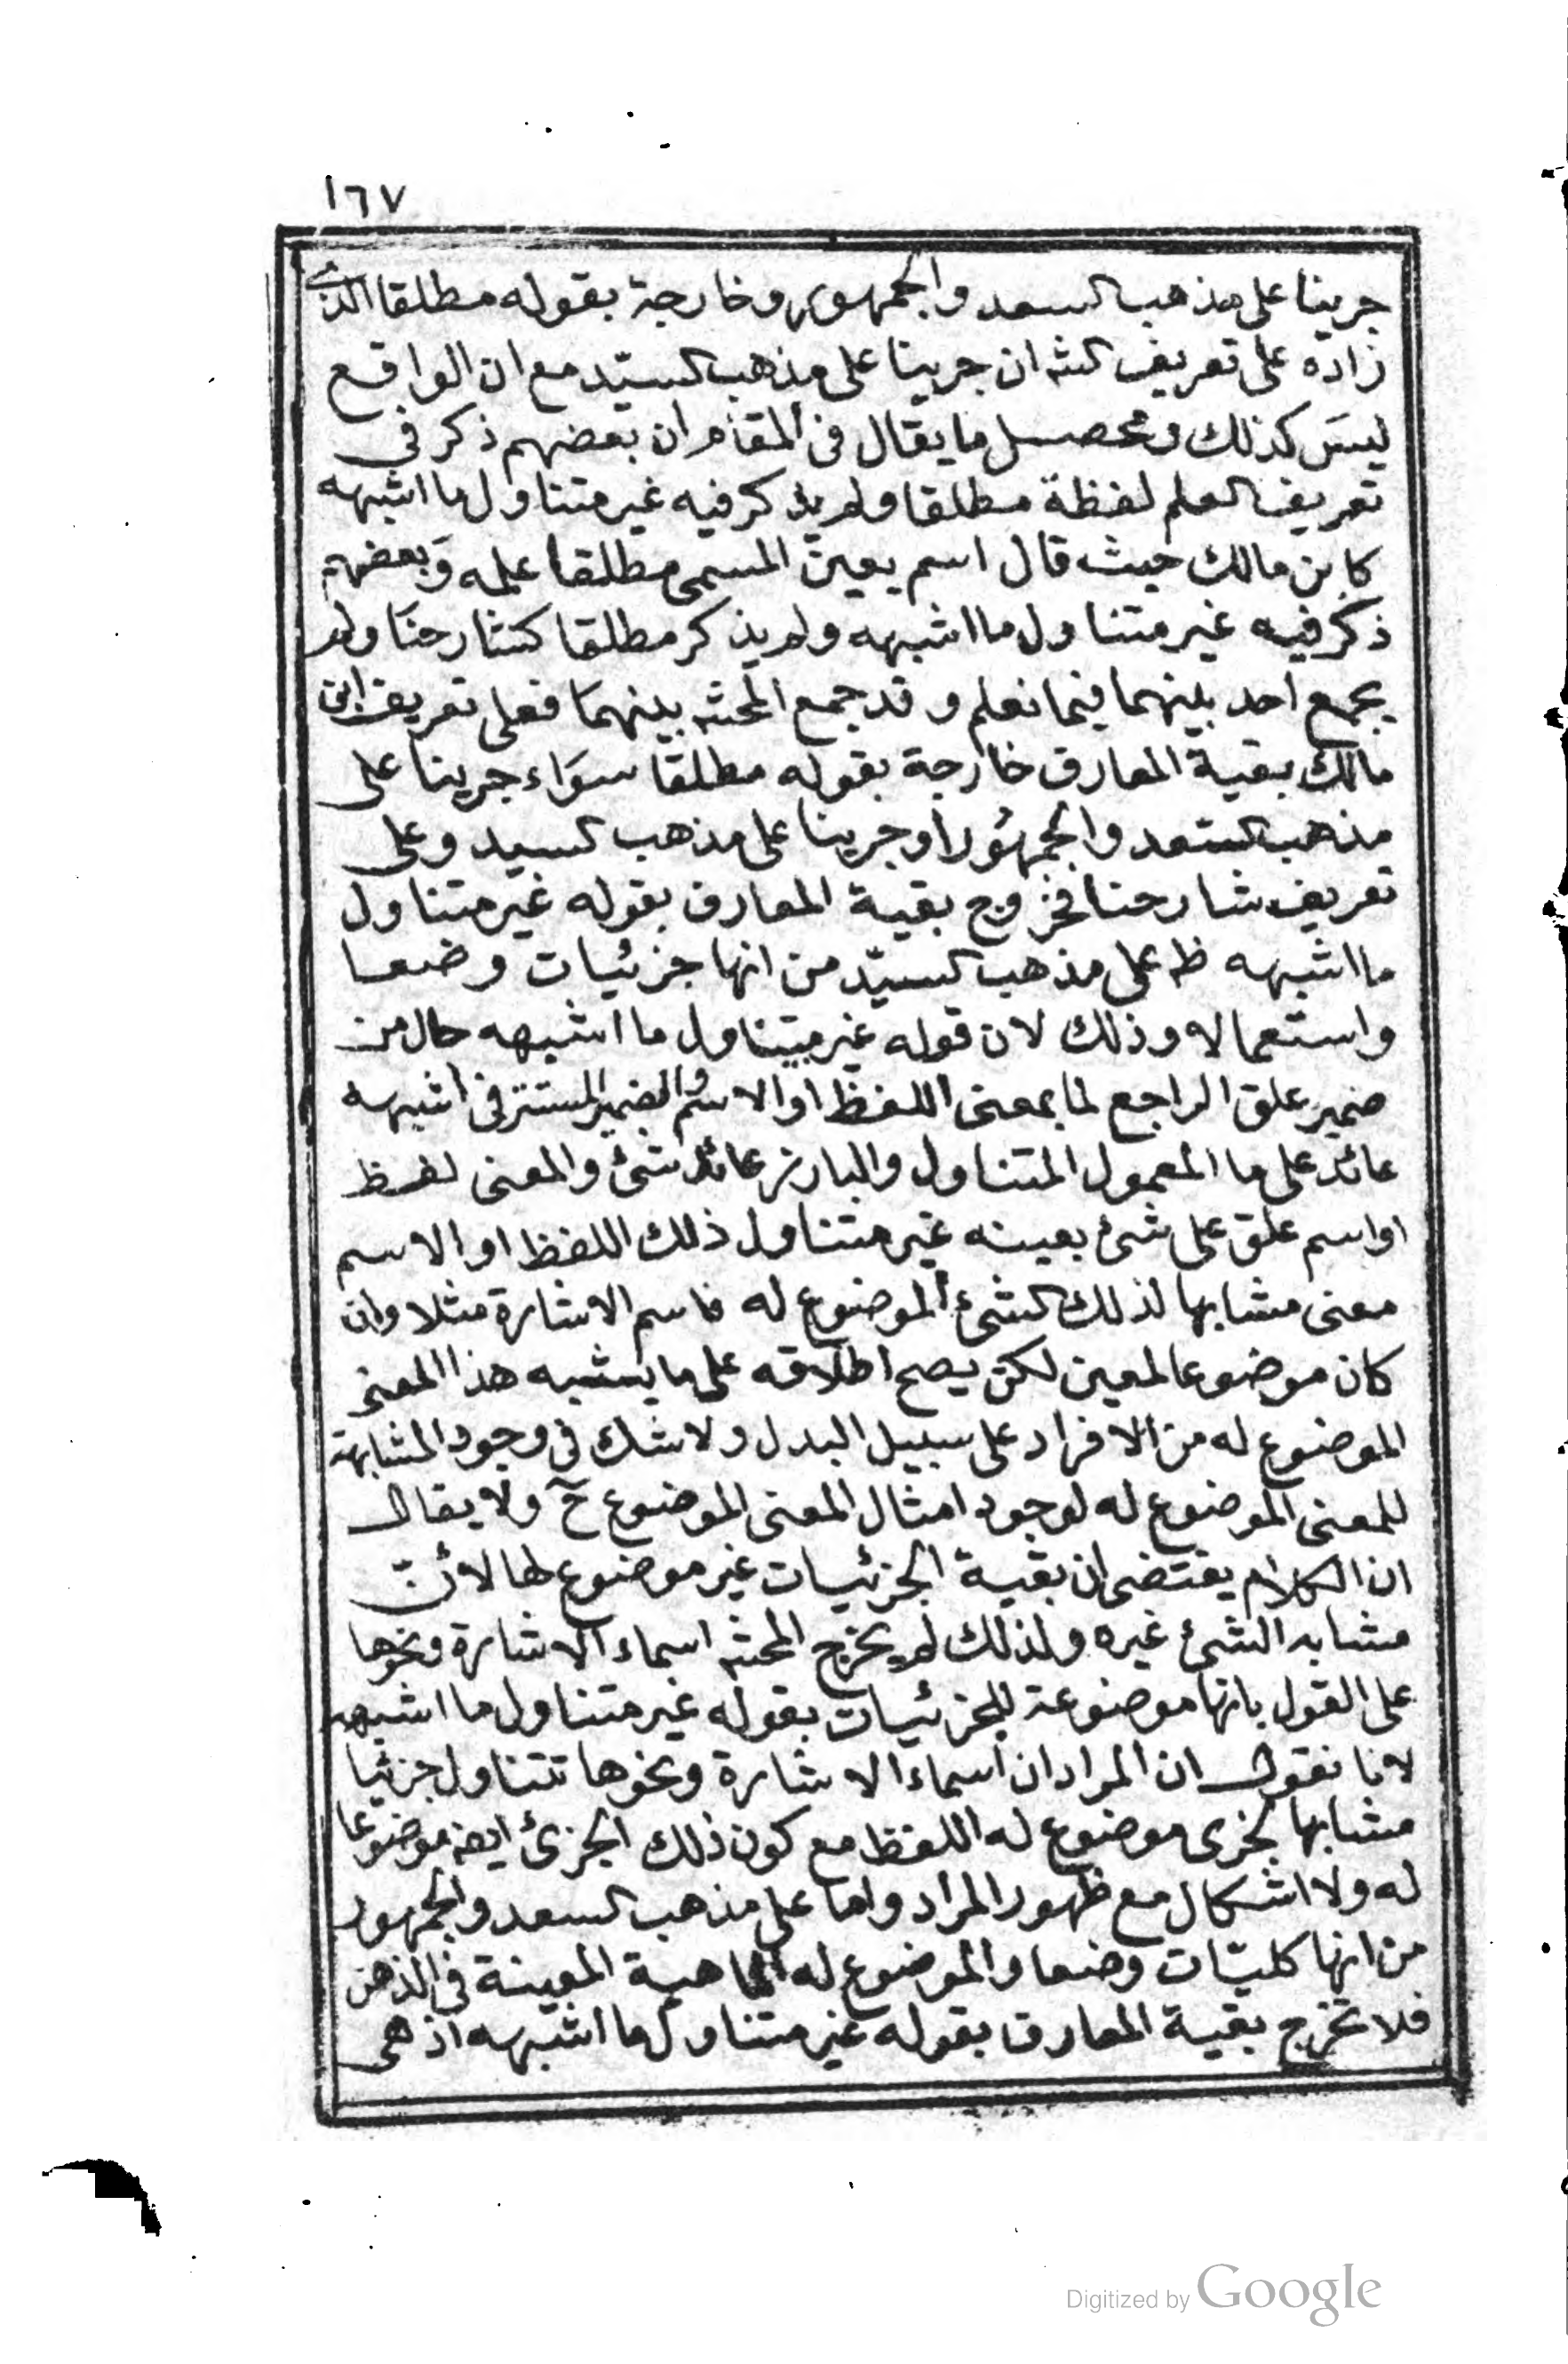 ١٦٧
جرينا على مذهب السعد والجمهور وخارجة بقوله مطلقا الذى
زاده على تعريف الشه ان جرينا على مذهب السيّد مع ان الواقع
ليس كذلك ومحصل ما يقال فى المقام ان بعضهم ذكر فى
تعريف العلم لفظة مطلقا ولم يذكر فيه غير متناول ما اشبهه
كابن مالك حيث قال اسم يعين المسمى مطلقا علمه وبعضهم
ذكر فيه غير متناول ما اشبهه ولم يذكر مطلقا كشارحنا ولم
يجمع احد بينهما فيما نعلم وقد جمع المحشه بينهما فعلى تعريف ابن
مالك بقية المعارف خارجة بقوله مطلقا سواء جرينا على
مذهب السعد والجمهور او جرينا على مذهب السيد وعلى
تعريف شارحنا فخروج بقية المعارف بقوله غير متناول
ما اشبهه ظه على مذهب السيّد من انها جزئيات وضعا
واستعمالا وذلك لان قوله غير متناول ما اشبهه حال من
ضمير علق الراجع لما بمعنى اللفظ او الاسم والضمير المستتر فى اشبهه
عائد على ما المعمول المتناول والبارز عائد شئ والمعنى لفظ
او اسم علق على شئ بعينه غير متناول ذلك اللفظ او الاسم
معنى مشابها لذلك الشئ الموضوع له فاسم الاشارة مثلا وان
كان موضوعا لمعين لكن يصح اطلاقه على ما يشبه هذا المعنى
الموضوع له من الافراد على سبيل البدل ولا شك فى وجود المشابهة
للمعنى الموضوع له لوجود امثال المعنى الموضوع ح ولا يقال
ان الكلام يقتضى ان بقية الجزئيات غير موضوع لها لانّ
مشابه الشئ غيره ولذلك لم يخرج المحشه اسماء الاشارة ونحوها
على القول بانها موضوعة للجزئيات بقوله غير متناول ما اشبهه
لانا نقول ان المراد ان اسماء الاشارة ونحوها تتناول جزئيا
مشابها لجزى موضوع له اللفظ مع كون ذلك الجزئ ايضه موضوعا
له ولا اشكال مع ظهور المراد واما على مذهب السعد والجمهور
من انها كليّات وضعا والموضوع له الماهية المعينة فى الذهن
فلا تخرج بقية المعارف بقوله غير متناول ما اشبهه اذ هى
Digitized by Google